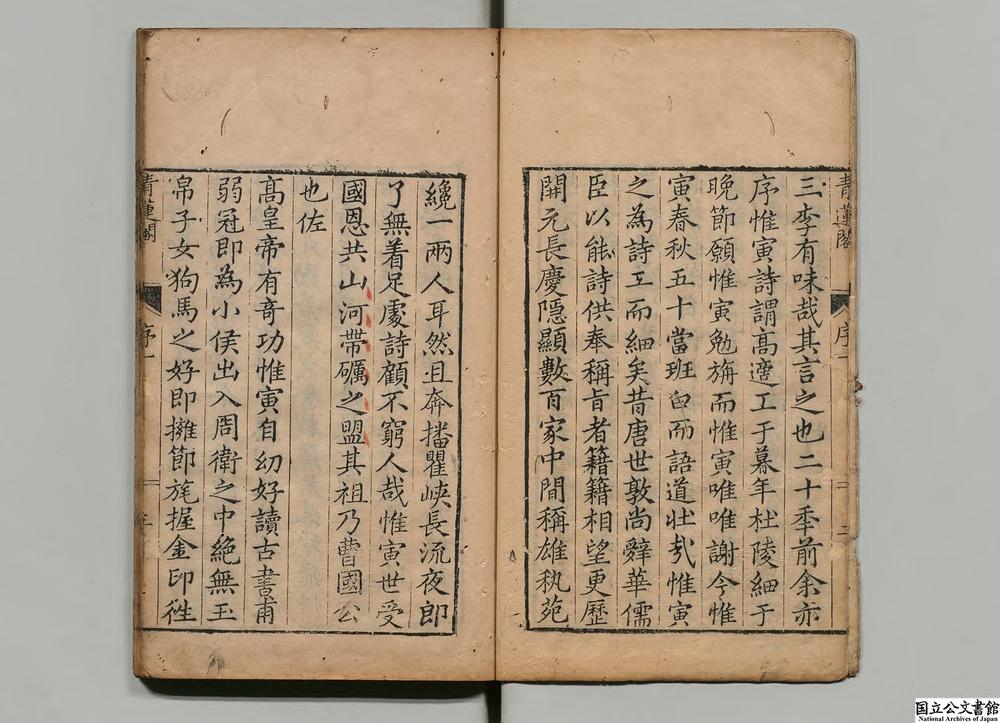 青蓮閣
序
二
三李有味哉其言之也二十季前余亦
序惟寅詩謂高適工于暮年杜陵細于
晚節願惟寅勉旃而惟寅唯唯謝今惟
寅春秋五十當班白而語道壯哉惟寅
之為詩工而細矣昔唐世敦尚辭華儒
臣以能詩供奉稱旨者籍籍相望更歷
開元長慶隱顯數百家中間稱雄執苑
纔一兩人耳然且奔播瞿峽長流夜郎
了無着足處詩顧不窮人哉惟寅世受
國恩共山河帶礪之盟其祖乃曹國公
也佐
高皇帝有奇功惟寅自幼好讀古書甫
弱冠即為小侯出入周衛之中絕無玉
帛子女狗馬之好即擁節旄握金印徃
青蓮閣
序
三
国立公文書館
National Archives of Japan